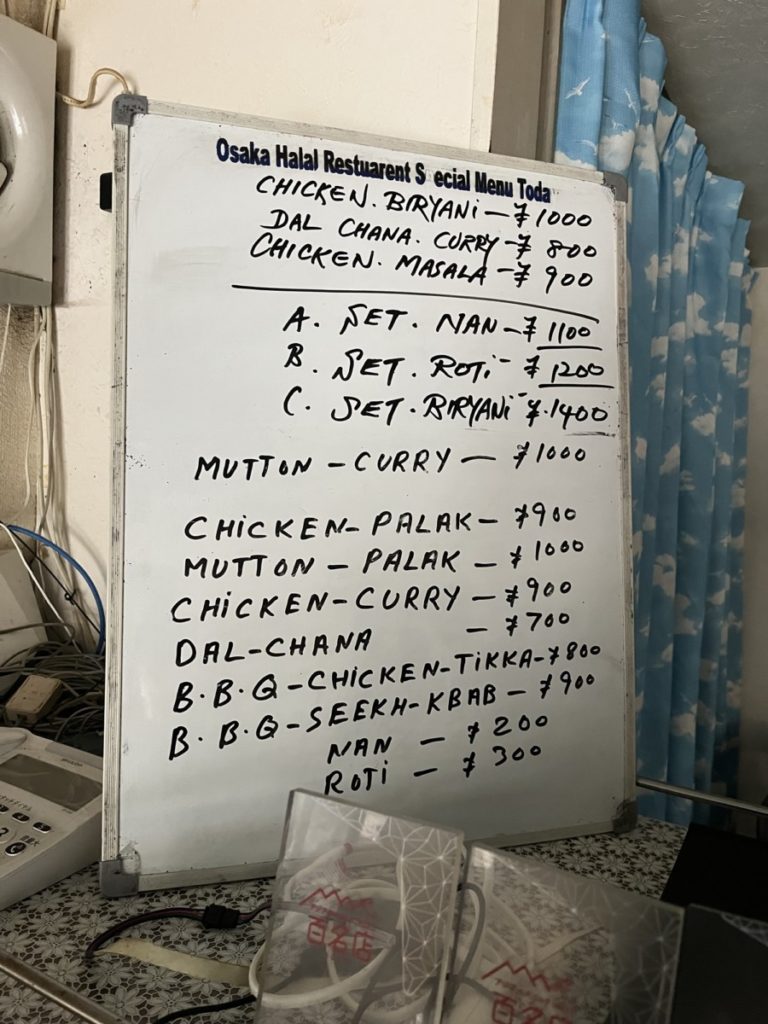 Osaka Halal Restuarent S ecial Menu Toda
CHICKEN. BIRYANI - ¥ 1000
DAL CHANA. CURRY - ¥ 800
CHICKEN. MASALA - ¥ 900
A. SET. NAN - ¥ 1100
B. SET. ROTI - ¥ 1200
C. SET. BIRYANI - ¥.1400
MUTTON - CURRY - ¥1000
CHICKEN - PALAK - ¥900
MUTTON - PALAK - ¥1000
CHICKEN - CURRY - ¥900
DAL-CHANA - ¥700
B.B.Q - CHICKEN-TIKKA - ¥800
B.B.Q - SEEKH-KBAB - ¥900
NAN - ¥ 200
ROTI - ¥ 300
百名店
百名店